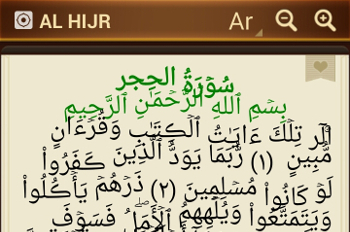 AL HIJR Ar
سُورَةُ الحِجر
بِسْمِ اللهِ الرَّحْمَٰنِ الرَّحِيمِ
الٓر تِلْكَ ءَايَٰتُ الْكِتَٰبِ وَقُرْءَانٍ
مُّبِينٍ (١) رُّبَمَا يَوَدُّ الَّذِينَ كَفَرُوا۟
لَوْ كَانُوا۟ مُسْلِمِينَ (٢) ذَرْهُمْ يَأْكُلُوا۟
وَيَتَمَتَّعُوا۟ وَيُلْهِهِمُ الْأَمَلُ ۖ فَسَوْفَ